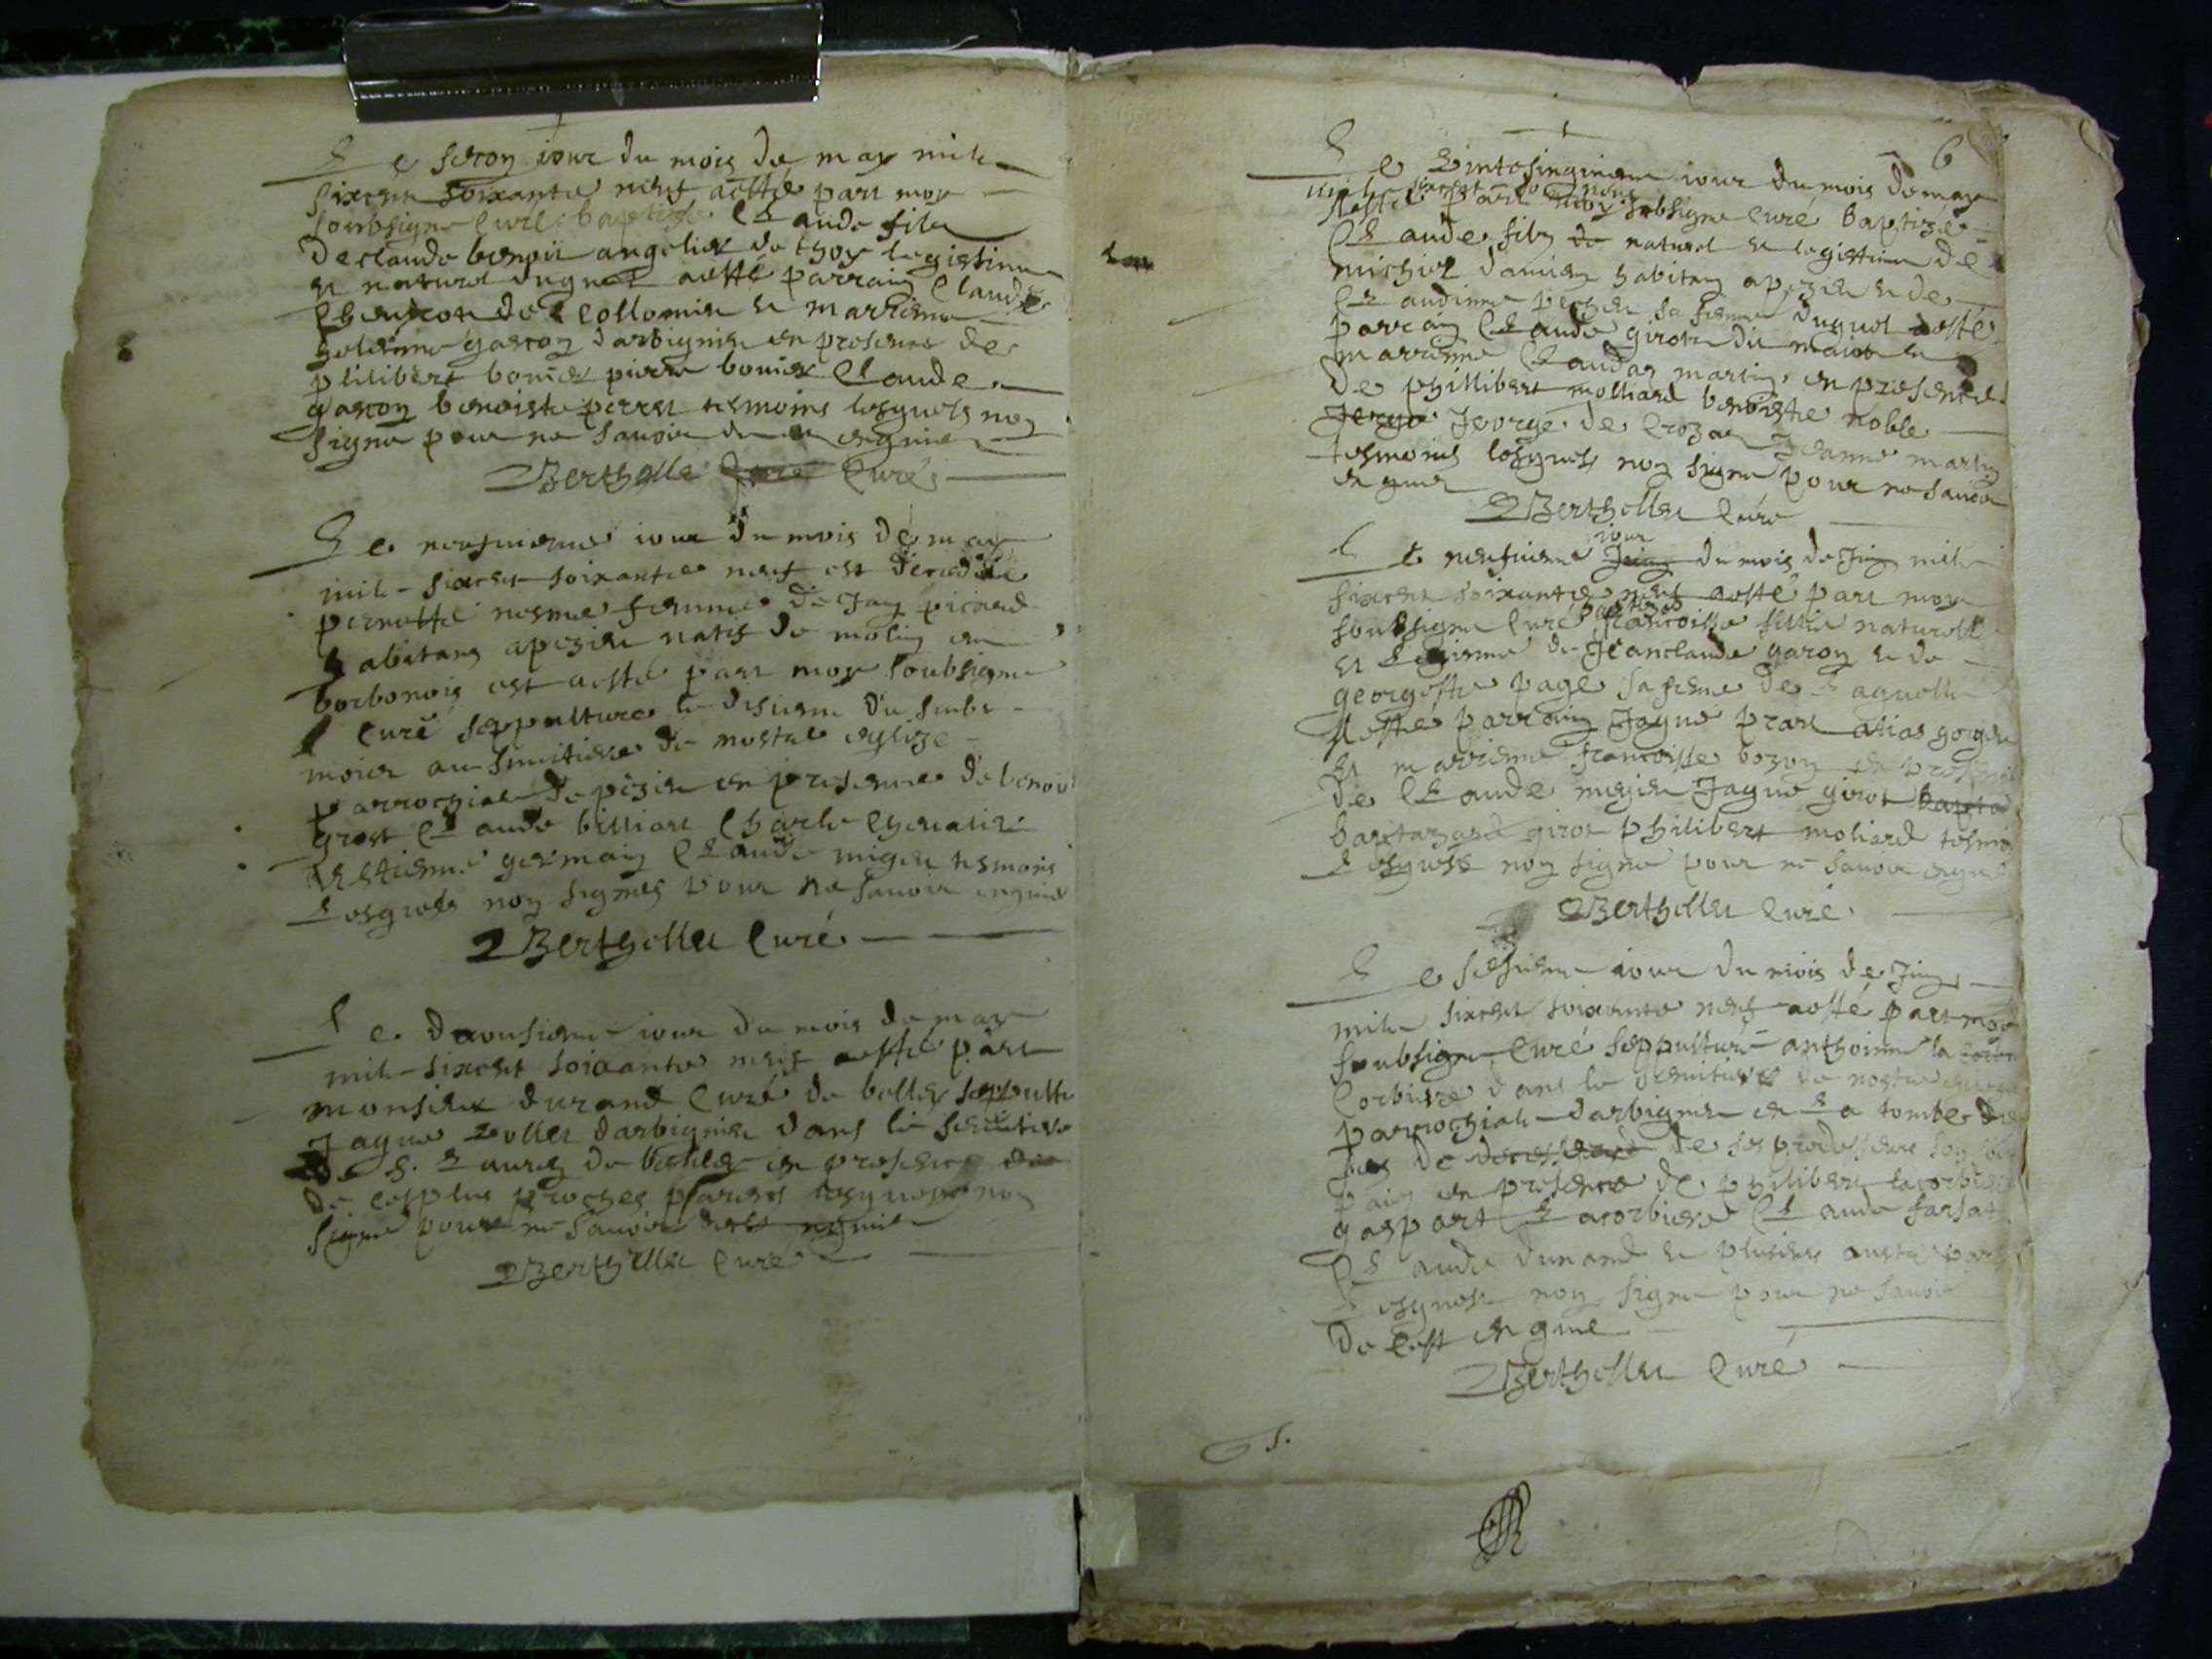 Le secon iour du mois de may mile
sixcent soixante neuf aesté parr moy
soubsigne Curé baptizé Claude filz
de claude benoit angelier de thoy legistime
et naturel duquel aesté parrain Claude
de Collomieu et marrienne
gascon darbignieu en presence de
philibert bonier pierre bonier Claude
gascon benoiste perret tesmoins lesquels non
signe pour ne savoir de ce enquis
Berthellet Curé
Le neufvieme iour du mois de may
mile sixcent soixante neuf est decedée
pernette nesme femme de Jan picard
habitans apezieu natif de molin en
borbonois est aesté parr moy soubsigne
Curé seppulture le disieme du susdit
mois au simitiere de nostre esglize
parrochiale de pezieu en presence de benoit
grost Claude billiart Charle Chevalier
estienne germain Claude migeu tesmoins
Lesquels non signes pour ne savoir enquis
Berthellet Curé
Le dousieme iour du mois de may
mile sixcent soixante neuf aesté parr
monsieur durand Curé de belley seppulture
Jaque rollet darbignieu dans le semitiere
de S. Laurens de belley en presence
de ces plus proches parens lesquels non
signe pour ne savoir enquis
Berthellet Curé
6
Le vintesinquieme iour du mois de may
mile sixcent
aesté parr moy subsigne Curé baptizé
Claude filz de naturel et legistime de
michiel damien habitan apezieu et de
Claudinne pechet sa femme duquel aesté
parrain Claude girot du maiot et
marrienne Claudaz martin en presence
de phillibert molliard benoiste noble
Jerge Jeorge de Crozat Jeanne martin
tesmoins lesquels non signe pour ne savoir
enquis
Berthellet Curé
iour
Le neufvieme Juing du mois de Juing mile
sixcent soixante neuf aesté parr moy
baptizé
soubsigne Curé francoisse fillie naturelle
et legisme de Jeanclaude garon et de
georgette page sa feme de
aesté parrain Jaque prat alias goiget
et marrienne francoisse bozon en presence
de Claude migieu Jaque girot
baltazard girot philibert moliard tesmoins
Lesquels non signe pour ne savoir enquis
Berthellet Curé
Le sesieme iour du mois de Juing
mile sixcent soixante neuf aesté parr moy
soubsigne Curé seppulture anthoinne la
Corbiere dans le semitiere de nostre esglize
parrochiale darbignieu en la tombe de
de de ses predesseurs son
en presence de philibert lacorbiere
gaspart Lacorbiere Claude farsat
Claude dunand et plusieurs austre
Lesquels non signe pour ne savoir
de cest enquis
Berthellet Curé